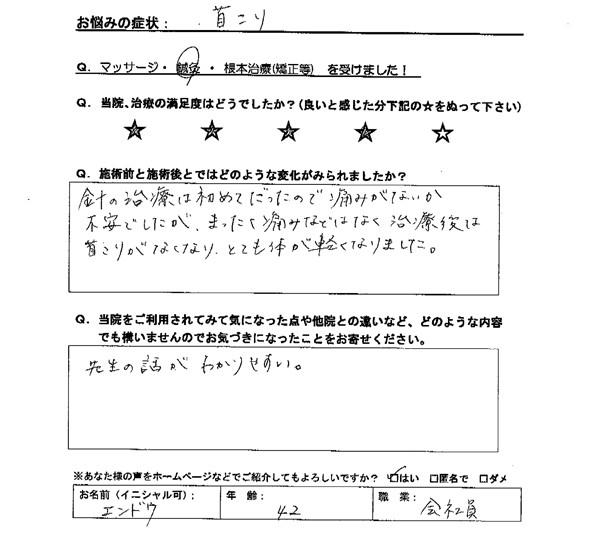 お悩みの症状： 首こり
Q. マッサージ・鍼灸・根本治療(矯正等) を受けました！
Q. 当院、治療の満足度はどうでしたか？(良いと感じた分下記の☆をぬって下さい)
★ ★ ★ ★ ☆
Q. 施術前と施術後とではどのような変化がみられましたか？
針の治療は初めてだったので痛みがないか
不安でしたが、まったく痛みなどはなく治療後は
首こりがなくなり、とても体が軽くなりました。
Q. 当院をご利用されてみて気になった点や他院との違いなど、どのような内容
でも構いませんのでお気づきになったことをお寄せください。
先生の話がわかりやすい。
※あなた様の声をホームページなどでご紹介してもよろしいですか？ ☑はい □匿名で □ダメ
お名前(イニシャル可)： 年 齢： 職 業：
エンドウ 42 会社員